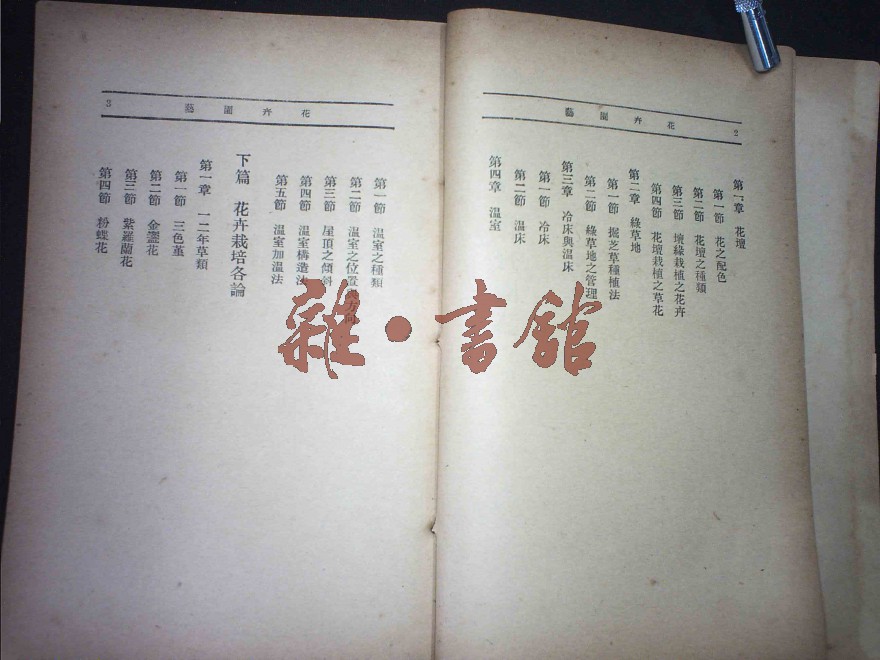 花卉園藝
2
第一章 花壇
第一節 花之配色
第二節 花壇之種類
第三節 壇緣栽植之花卉
第四節 花壇栽植之草花
第二章 綠草地
第一節 掘芝草種植法
第二節 綠草地之管理
第三章 冷床與溫床
第一節 冷床
第二節 溫床
第四章 溫室
花卉園藝
3
第一節 溫室之種類
第二節 溫室之位置
第三節 屋頂之傾斜
第四節 溫室構造法
第五節 溫室加溫法
下篇 花卉栽培各論
第一章 一二年草類
第一節 三色堇
第二節 金盞花
第三節 紫羅蘭花
第四節 粉蝶花
雜·書館